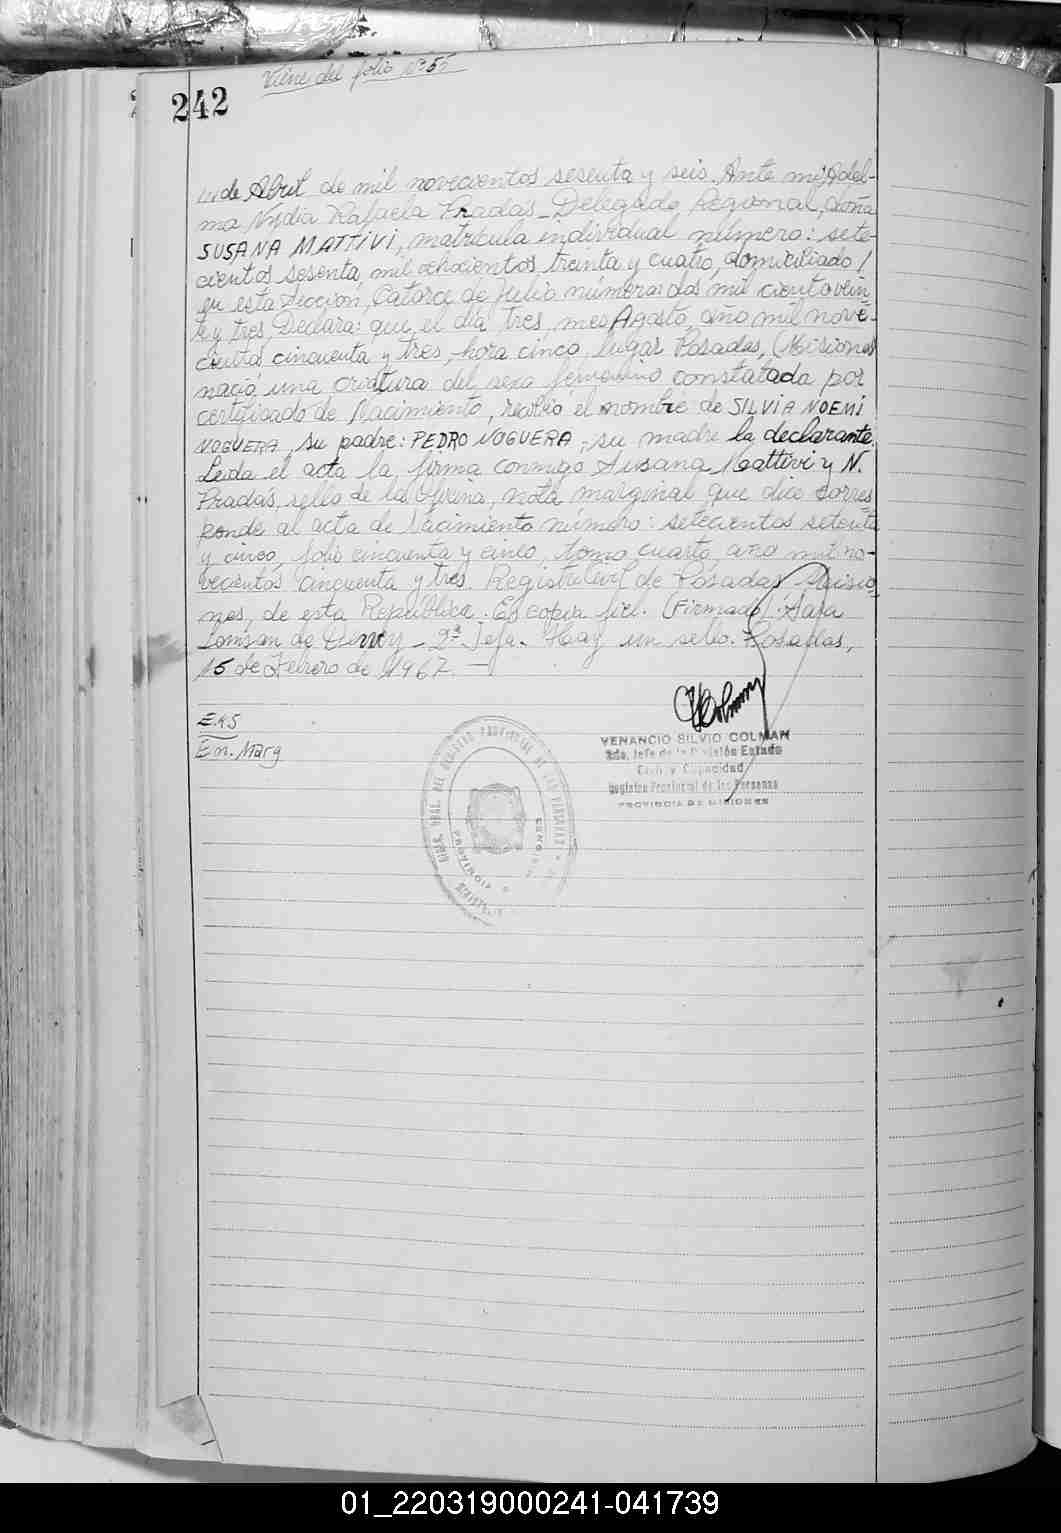 Viene del folio Nº 55
242
de Abril de mil novecientos sesenta y seis. Ante mi Adel-
ma Nydia Rafaela Pradas - Delegado Regional, doña
SUSANA MATTIVI, matrícula individual número: sete-
cientos sesenta mil ochocientos treinta y cuatro, domiciliado/
en esta Sección, Catorce de Julio número: dos mil ciento vein
te y tres, Declara: que, el día tres mes Agosto año mil nove-
cientos cincuenta y tres, hora cinco, lugar Posadas, (Misiones
nació una criatura del sexo femenino constatada por
certificado de Nacimiento, recibió el nombre de SILVIA NOEMI
NOGUERA, su padre: PEDRO NOGUERA, su madre la declarante.
Leída el acta la firma conmigo Susana Mattivi y N.
Pradas, sello de la Oficina, nota marginal que dice corres
ponde al acta de Nacimiento número: setecientos setenta
y cinco, folio cincuenta y cinco, tomo cuarto, año mil no-
vecientos cincuenta y tres. Registro Civil de Posadas, Misio-
nes, de esta República. Es copia fiel. (Firmado): Sara
de 2ª Jefa. Hay un sello. Posadas,
15 de Febrero de 1967.-
En. Marg
VENANCIO SILVIO COLMAN
2do. Jefe de la División Estado
Civil y Capacidad
Registro Provincial de las Personas
PROVINCIA DE MISIONES
GRAL. DEL REGISTRO PROVINCIAL DE LAS PERSONAS
PROVINCIA MISIONES
01_220319000241-041739